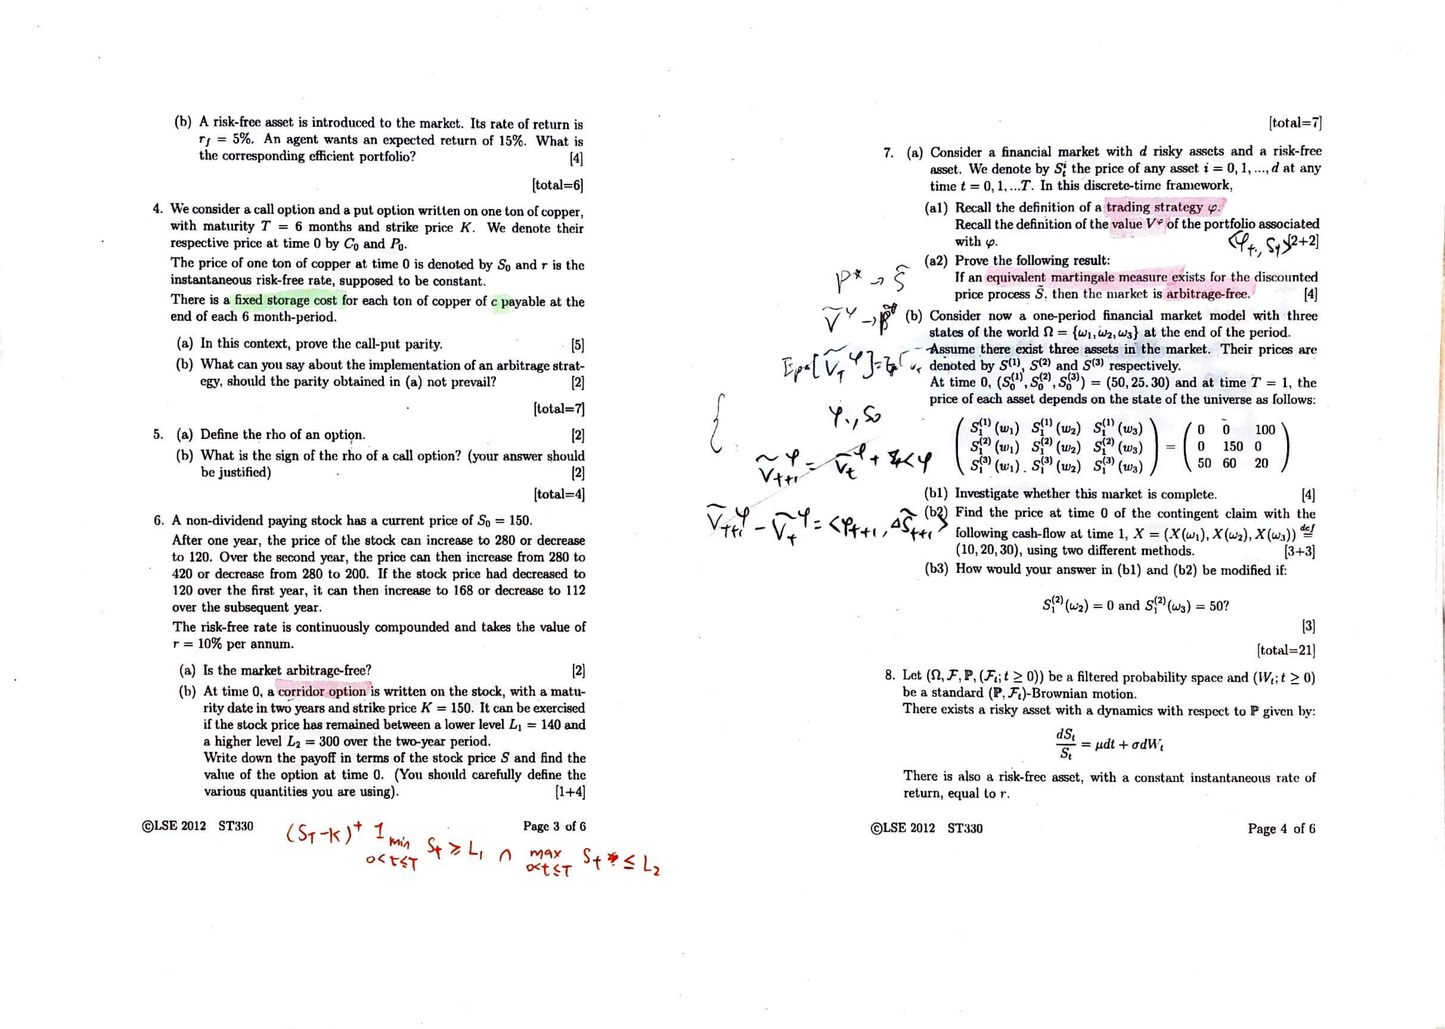 (b) A risk-free asset is introduced to the market. Its rate of return is
r_f = 5%. An agent wants an expected return of 15%. What is
the corresponding efficient portfolio? [4]
[total=6]
4. We consider a call option and a put option written on one ton of copper,
with maturity T = 6 months and strike price K. We denote their
respective price at time 0 by C₀ and P₀.
The price of one ton of copper at time 0 is denoted by S₀ and r is the
instantaneous risk-free rate, supposed to be constant.
There is a fixed storage cost for each ton of copper of c payable at the
end of each 6 month-period.
(a) In this context, prove the call-put parity. [5]
(b) What can you say about the implementation of an arbitrage strat-
egy, should the parity obtained in (a) not prevail? [2]
[total=7]
5. (a) Define the rho of an option. [2]
(b) What is the sign of the rho of a call option? (your answer should
be justified) [2]
[total=4]
6. A non-dividend paying stock has a current price of S₀ = 150.
After one year, the price of the stock can increase to 280 or decrease
to 120. Over the second year, the price can then increase from 280 to
420 or decrease from 280 to 200. If the stock price had decreased to
120 over the first year, it can then increase to 168 or decrease to 112
over the subsequent year.
The risk-free rate is continuously compounded and takes the value of
r = 10% per annum.
(a) Is the market arbitrage-free? [2]
(b) At time 0, a corridor option is written on the stock, with a matu-
rity date in two years and strike price K = 150. It can be exercised
if the stock price has remained between a lower level L₁ = 140 and
a higher level L₂ = 300 over the two-year period.
Write down the payoff in terms of the stock price S and find the
value of the option at time 0. (You should carefully define the
various quantities you are using). [1+4]
©LSE 2012 ST330 Page 3 of 6
(S_T - K)⁺ 1 min S_t ≥ L₁ ∩ max S_t ≤ L₂
0<t≤T 0<t≤T
[total=7]
7. (a) Consider a financial market with d risky assets and a risk-free
asset. We denote by Sᵢₜ the price of any asset i = 0, 1, ..., d at any
time t = 0, 1, ...T. In this discrete-time framework,
(a1) Recall the definition of a trading strategy φ.
Recall the definition of the value V^φ of the portfolio associated
with φ. [2+2]
<φ_t, S_t>
(a2) Prove the following result:
If an equivalent martingale measure exists for the discounted
price process S̃, then the market is arbitrage-free. [4]
P* → S̃
(b) Consider now a one-period financial market model with three
states of the world Ω = {ω₁, ω₂, ω₃} at the end of the period.
Assume there exist three assets in the market. Their prices are
denoted by S⁽¹⁾, S⁽²⁾ and S⁽³⁾ respectively.
At time 0, (S₀⁽¹⁾, S₀⁽²⁾, S₀⁽³⁾) = (50, 25. 30) and at time T = 1, the
price of each asset depends on the state of the universe as follows:
φ., S₀
( S₁⁽¹⁾(w₁) S₁⁽¹⁾(w₂) S₁⁽¹⁾(w₃) ) = ( 0 0 100 )
( S₁⁽²⁾(w₁) S₁⁽²⁾(w₂) S₁⁽²⁾(w₃) ) = ( 0 150 0 )
( S₁⁽³⁾(w₁) . S₁⁽³⁾(w₂) S₁⁽³⁾(w₃) ) = ( 50 60 20 )
(b1) Investigate whether this market is complete. [4]
(b2) Find the price at time 0 of the contingent claim with the
following cash-flow at time 1, X = (X(ω₁), X(ω₂), X(ω₃)) def=
(10, 20, 30), using two different methods. [3+3]
Ṽ_{t+1}^φ - Ṽ_t^φ = <φ_{t+1}, ΔS̃_{t+1}>
(b3) How would your answer in (b1) and (b2) be modified if:
S₁⁽²⁾(ω₂) = 0 and S₁⁽²⁾(ω₃) = 50?
[3]
[total=21]
8. Let (Ω, F, P, (F_t; t ≥ 0)) be a filtered probability space and (W_t; t ≥ 0)
be a standard (P, F_t)-Brownian motion.
There exists a risky asset with a dynamics with respect to P given by:
dS_t/S_t = μdt + σdW_t
There is also a risk-free asset, with a constant instantaneous rate of
return, equal to r.
©LSE 2012 ST330 Page 4 of 6